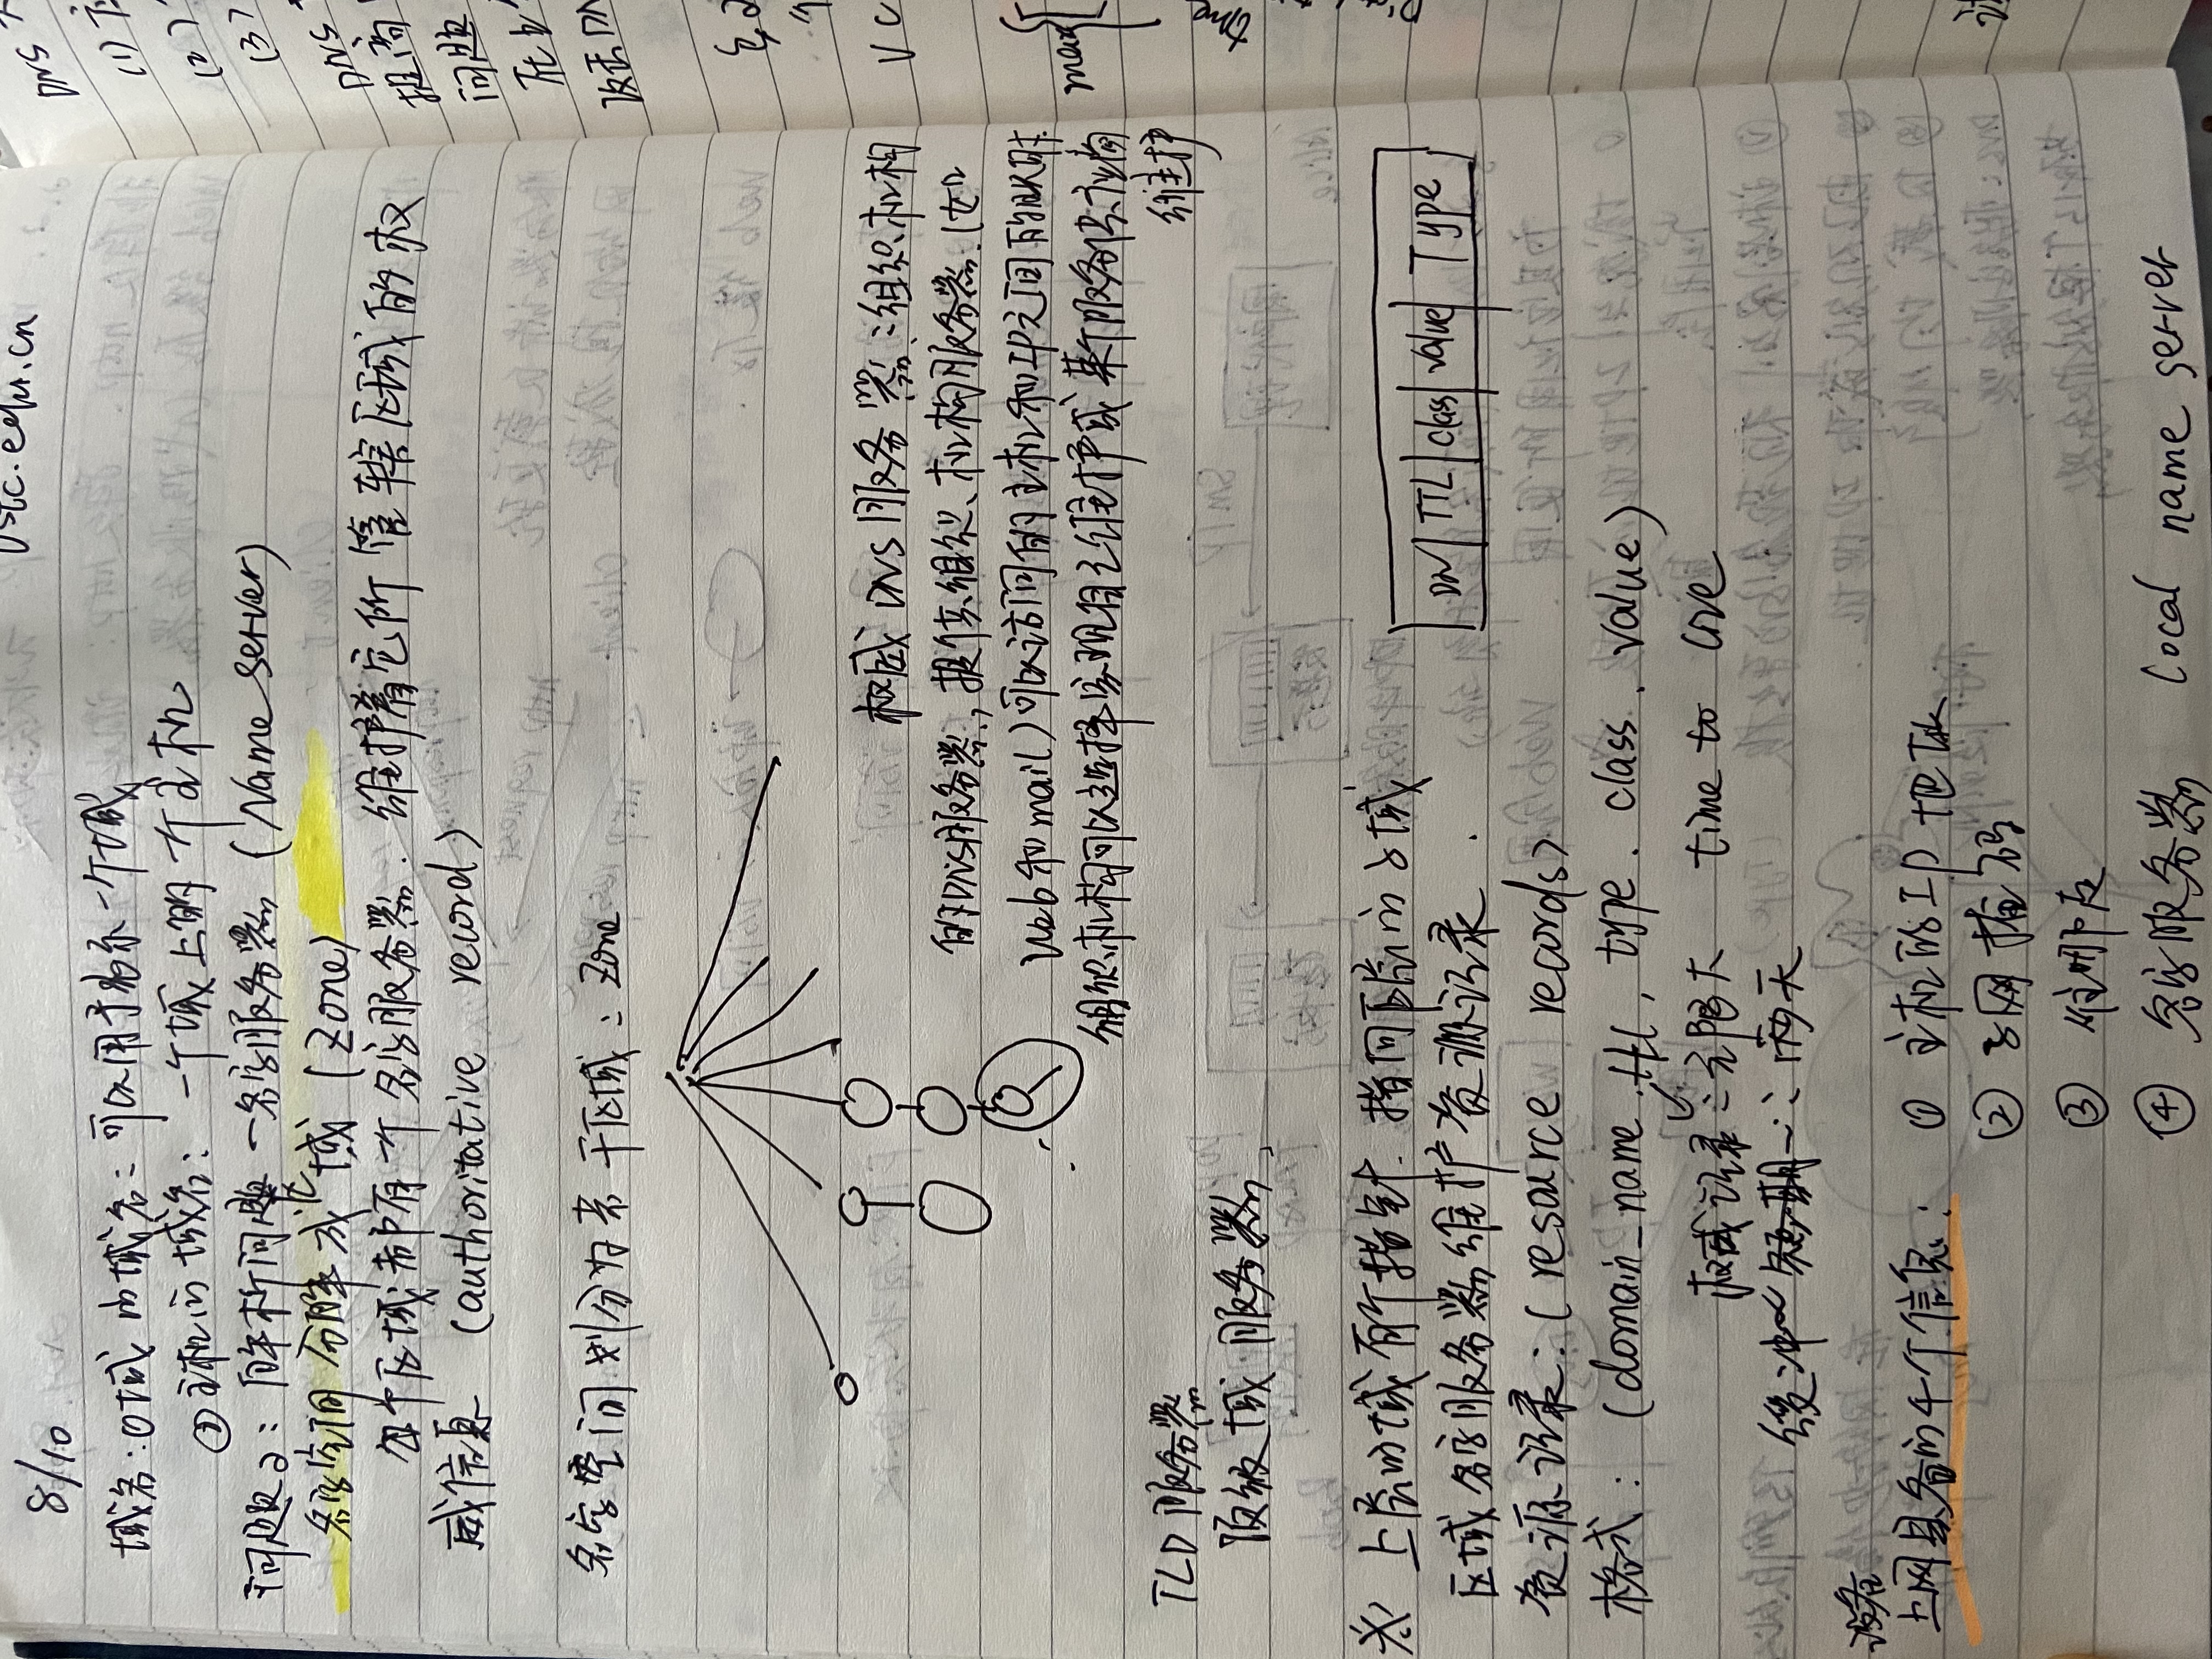 ustc.edu.cn
8/10
域名:①域的域名:可以用于表示一个域
②主机的域名:一个域上的一个主机
问题2:解析问题-名字服务器(Name server)
名字空间分解成区域(Zone)
每个区域都有一个名字服务器.维护着它所管辖区域的权
威信息(authoritative record)
名字空间划分为若干区域:Zone
权威DNS服务器:组织机构
的DNS服务器,提供组织、机构服务器.(如
Web和mail)可以访问的主机和IP之间的映射.
组织机构可以选择实现自己维护或某个服务供应商
维护
TLD服务器
顶级域服务器,
上层的域有个指针.指向下层的子域
区域名字服务器维护资源记录.
DN TTL class value Type
资源记录:(resource records)
格式:(domain_name.ttl, type.class.value)
权威记录:无限大 time to live
缓冲~ 短期一:两天
设备
上网具备的4个信息:① 主机的IP地址
② 子网掩码
③ 往哪走
④ 名字服务器 Local name server
DNS
(1)
(2)
(3)
DNS
提高
问题
攻击DN
max
time